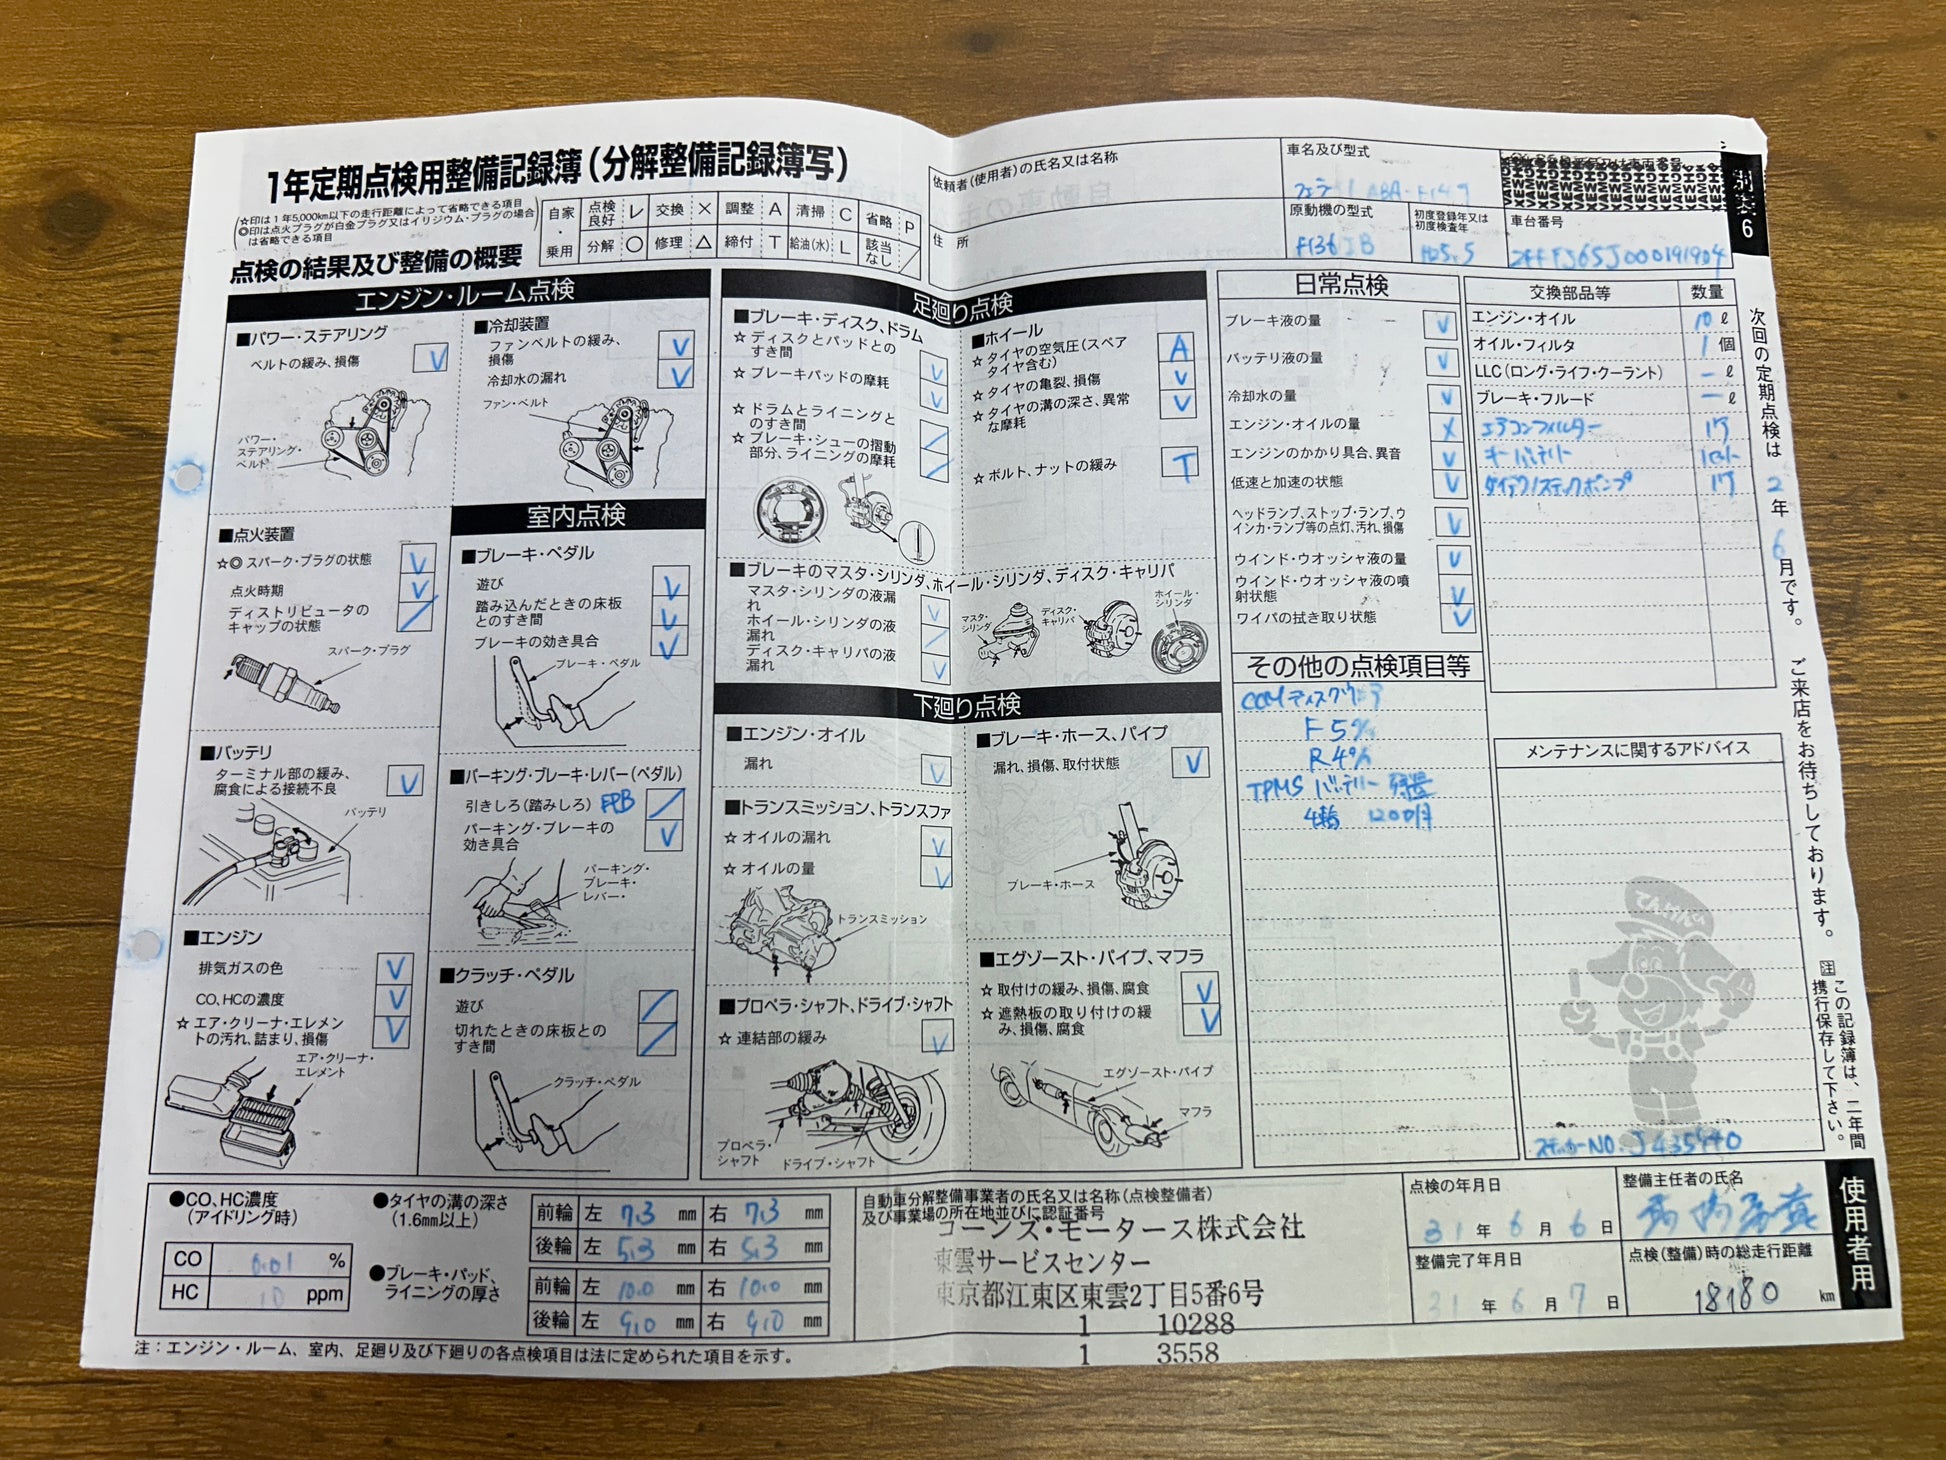 1年定期点検用整備記録簿(分解整備記録簿写)
☆印は1年5,000km以下の走行距離によって省略できる項目
◎印は点火プラグが白金プラグ又はイリジウム・プラグの場合
は省略できる項目
点検の結果及び整備の概要
自家・乗用
点検良好 レ 交換 × 調整 A 清掃 C 省略 P
分解 ○ 修理 △ 締付 T 給油(水) L 該当なし /
依頼者(使用者)の氏名又は名称
住 所
車名及び型式
フェラーリ ABA-F149
原動機の型式
F136 IB
初度登録年又は
初度検査年
H25.5
車台番号
ZFFFJ65J000191904
別表6
エンジン・ルーム点検
■パワー・ステアリング
ベルトの緩み、損傷 V
パワー・
ステアリング・
ベルト
■冷却装置
ファンベルトの緩み、
損傷 V
冷却水の漏れ V
ファン・ベルト
■点火装置
☆◎ スパーク・プラグの状態 V
点火時期 V
ディストリビュータの
キャップの状態 /
スパーク・プラグ
■バッテリ
ターミナル部の緩み、
腐食による接続不良 V
バッテリ
■エンジン
排気ガスの色 V
CO、HCの濃度 V
☆ エア・クリーナ・エレメン
トの汚れ、詰まり、損傷 V
エア・クリーナ・
エレメント
室内点検
■ブレーキ・ペダル
遊び V
踏み込んだときの床板
とのすき間 V
ブレーキの効き具合 V
ブレーキ・ペダル
■パーキング・ブレーキ・レバー(ペダル)
引きしろ(踏みしろ) EPB /
パーキング・ブレーキの
効き具合 V
パーキング・
ブレーキ・
レバー
■クラッチ・ペダル
遊び /
切れたときの床板との
すき間 /
クラッチ・ペダル
足廻り点検
■ブレーキ・ディスク、ドラム
☆ ディスクとパッドとの
すき間 V
☆ ブレーキパッドの摩耗 V
☆ ドラムとライニングと
のすき間 /
☆ ブレーキ・シューの摺動
部分、ライニングの摩耗 /
■ホイール
☆ タイヤの空気圧(スペア
タイヤ含む) A
☆ タイヤの亀裂、損傷 V
☆ タイヤの溝の深さ、異常
な摩耗 V
☆ ボルト、ナットの緩み T
■ブレーキのマスタ・シリンダ、ホイール・シリンダ、ディスク・キャリパ
マスタ・シリンダの液漏
れ V
ホイール・シリンダの液
漏れ /
ディスク・キャリパの液
漏れ V
マスタ・
シリンダ
ディスク・
キャリパ
ホイール・
シリンダ
下廻り点検
■エンジン・オイル
漏れ V
■トランスミッション、トランスファ
☆ オイルの漏れ V
☆ オイルの量 V
トランスミッション
■プロペラ・シャフト、ドライブ・シャフト
☆ 連結部の緩み V
プロペラ・
シャフト
ドライブ・シャフト
■ブレーキ・ホース、パイプ
漏れ、損傷、取付状態 V
ブレーキ・ホース
■エグゾースト・パイプ、マフラ
☆ 取付けの緩み、損傷、腐食 V
☆ 遮熱板の取り付けの緩
み、損傷、腐食 V
エグゾースト・パイプ
マフラ
日常点検
ブレーキ液の量 V
バッテリ液の量 V
冷却水の量 V
エンジン・オイルの量 X
エンジンのかかり具合、異音 V
低速と加速の状態 V
ヘッドランプ、ストップ・ランプ、ウ
インカ・ランプ等の点灯、汚れ、損傷 V
ウインド・ウオッシャ液の量 V
ウインド・ウオッシャ液の噴
射状態 V
ワイパの拭き取り状態 V
その他の点検項目等
CCMディスクウェア
F 5%
R 4%
TPMS バッテリー 残量
4輪 120ヶ月
交換部品等 数量
エンジン・オイル 10 ℓ
オイル・フィルタ 1 個
LLC(ロング・ライフ・クーラント) ー ℓ
ブレーキ・フルード ー ℓ
エアコンフィルター 1ケ
キーバッテリー
ダイアグノスティックポンプ 1ケ
メンテナンスに関するアドバイス
てんけんくん
ステッカーNO. J435940
次回の定期点検は 2 年 6 月です。 ご来店をお待ちしております。
注 この記録簿は、二年間
携行保存して下さい。
使用者用
●CO、HC濃度
(アイドリング時)
CO 0.01 %
HC 10 ppm
●タイヤの溝の深さ
(1.6mm以上)
前輪 左 7.3 mm 右 7.3 mm
後輪 左 5.3 mm 右 5.3 mm
●ブレーキ・パッド、
ライニングの厚さ
前輪 左 10.0 mm 右 10.0 mm
後輪 左 9.0 mm 右 9.0 mm
自動車分解整備事業者の氏名又は名称(点検整備者)
及び事業場の所在地並びに認証番号
コーンズ・モータース株式会社
東雲サービスセンター
東京都江東区東雲2丁目5番6号
1 10288
1 3558
点検の年月日
31 年 6 月 6 日
整備完了年月日
31 年 6 月 7 日
整備主任者の氏名
点検(整備)時の総走行距離
18180 km
注：エンジン・ルーム、室内、足廻り及び下廻りの各点検項目は法に定められた項目を示す。